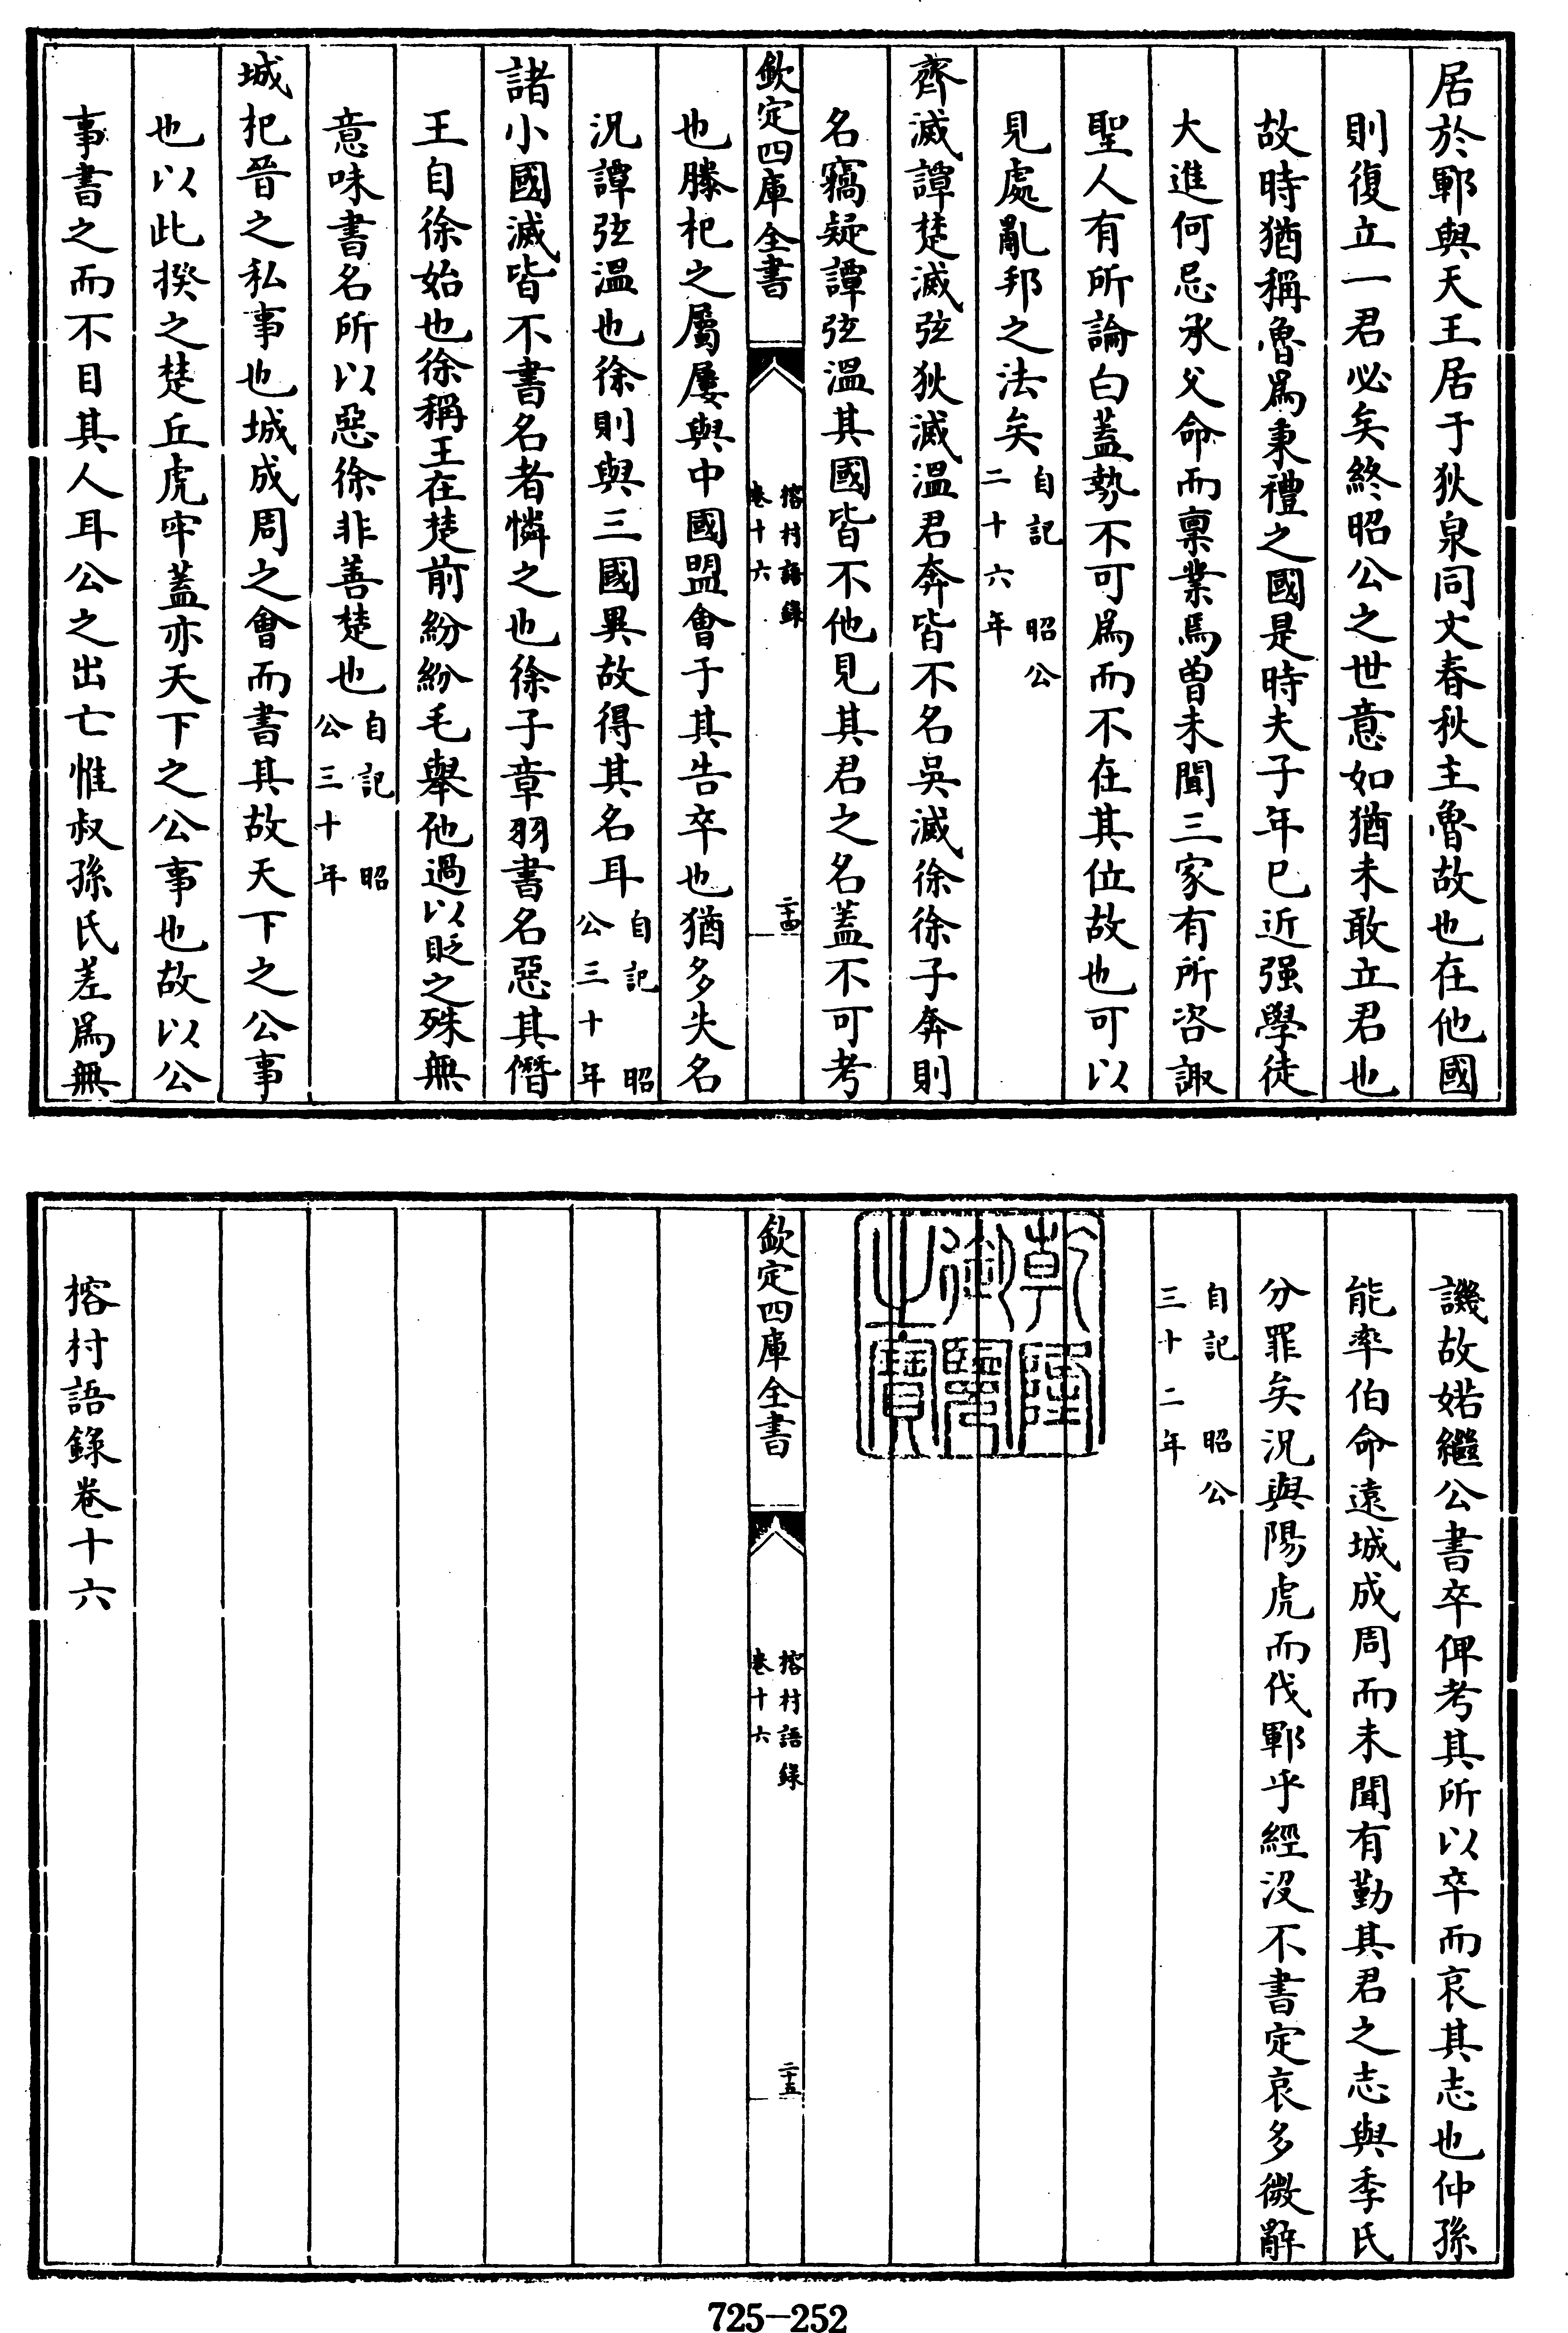 居於鄆與天王居于狄泉同文春秋主魯故也在他國
則復立一君必矣終昭公之世意如猶未敢立君也
故時猶稱魯為秉禮之國是時夫子年已近强學徒
大進何忌承父命而稟業焉曽未聞三家有所咨諏
聖人有所論白蓋勢不可為而不在其位故也可以
見處亂邦之法矣自記 昭公二十六年
齊滅譚楚滅弦狄滅溫君奔皆不名吳滅徐徐子奔則
名竊疑譚弦溫其國皆不他見其君之名蓋不可考
欽定四庫全書
榕村語錄
卷十六
二十四
也滕杞之屬屢與中國盟會于其告卒也猶多失名
况譚弦溫也徐則與三國異故得其名耳自記 昭公三十年
諸小國滅皆不書名者憐之也徐子章羽書名惡其僭
王自徐始也徐稱王在楚前紛紛毛舉他過以貶之殊無
意味書名所以惡徐非善楚也自記 昭公三十年
城杞晉之私事也城成周之會而書其故天下之公事
也以此揆之楚丘虎牢蓋亦天下之公事也故以公
事書之而不目其人耳公之出亡惟叔孫氏差為無
譏故婼繼公書卒俾考其所以卒而哀其志也仲孫
能率伯命遠城成周而未聞有勤其君之志與季氏
分罪矣况與陽虎而伐鄆乎經沒不書定哀多微辭
自記 昭公三十二年
乾隆御覽之寶
欽定四庫全書
榕村語錄
卷十六
二十五
榕村語錄卷十六
725-252